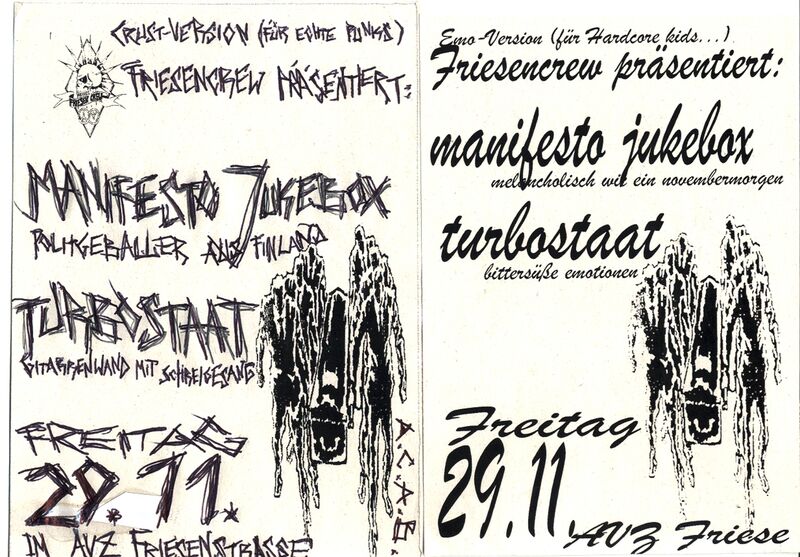 CRUST-VERSION (FÜR ECHTE PUNKS)
FRIESENCREW PRÄSENTIERT:
MANIFESTO JUKEBOX
POLITGEBALLER AUS FINLAND
TURBOSTAAT
GITARRENWAND MIT SCHREIGESANG
FREITAG
29.11.
IM AVZ FRIESENSTRASSE
A.C.A.B.
Emo-Version (für Hardcore kids...)
Friesencrew präsentiert:
manifesto jukebox
melancholisch wie ein novembermorgen
turbostaat
bittersüße emotionen
Freitag
29.11.
AVZ Friese